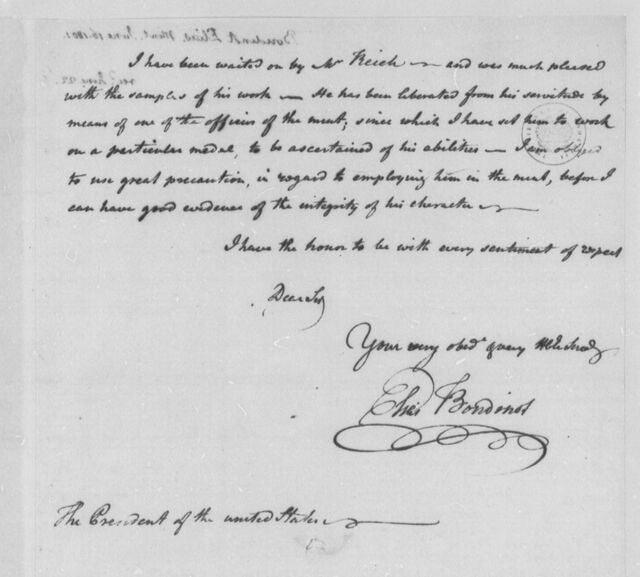 I have been waited on by Mr Reich — and was much pleased
with the samples of his work — He has been liberated from his servitude by
means of one of the officers of the mint; since which I have set him to work
on a particular medal, to be ascertained of his abilities — I am obliged
to use great precaution, in regard to employing him in the mint, before I
can have good evidence of the integrity of his character —
I have the honor to be with every sentiment of respect
Dear Sir
Your very obedt & very Hble Servt
Elias Boudinot
The President of the united States —